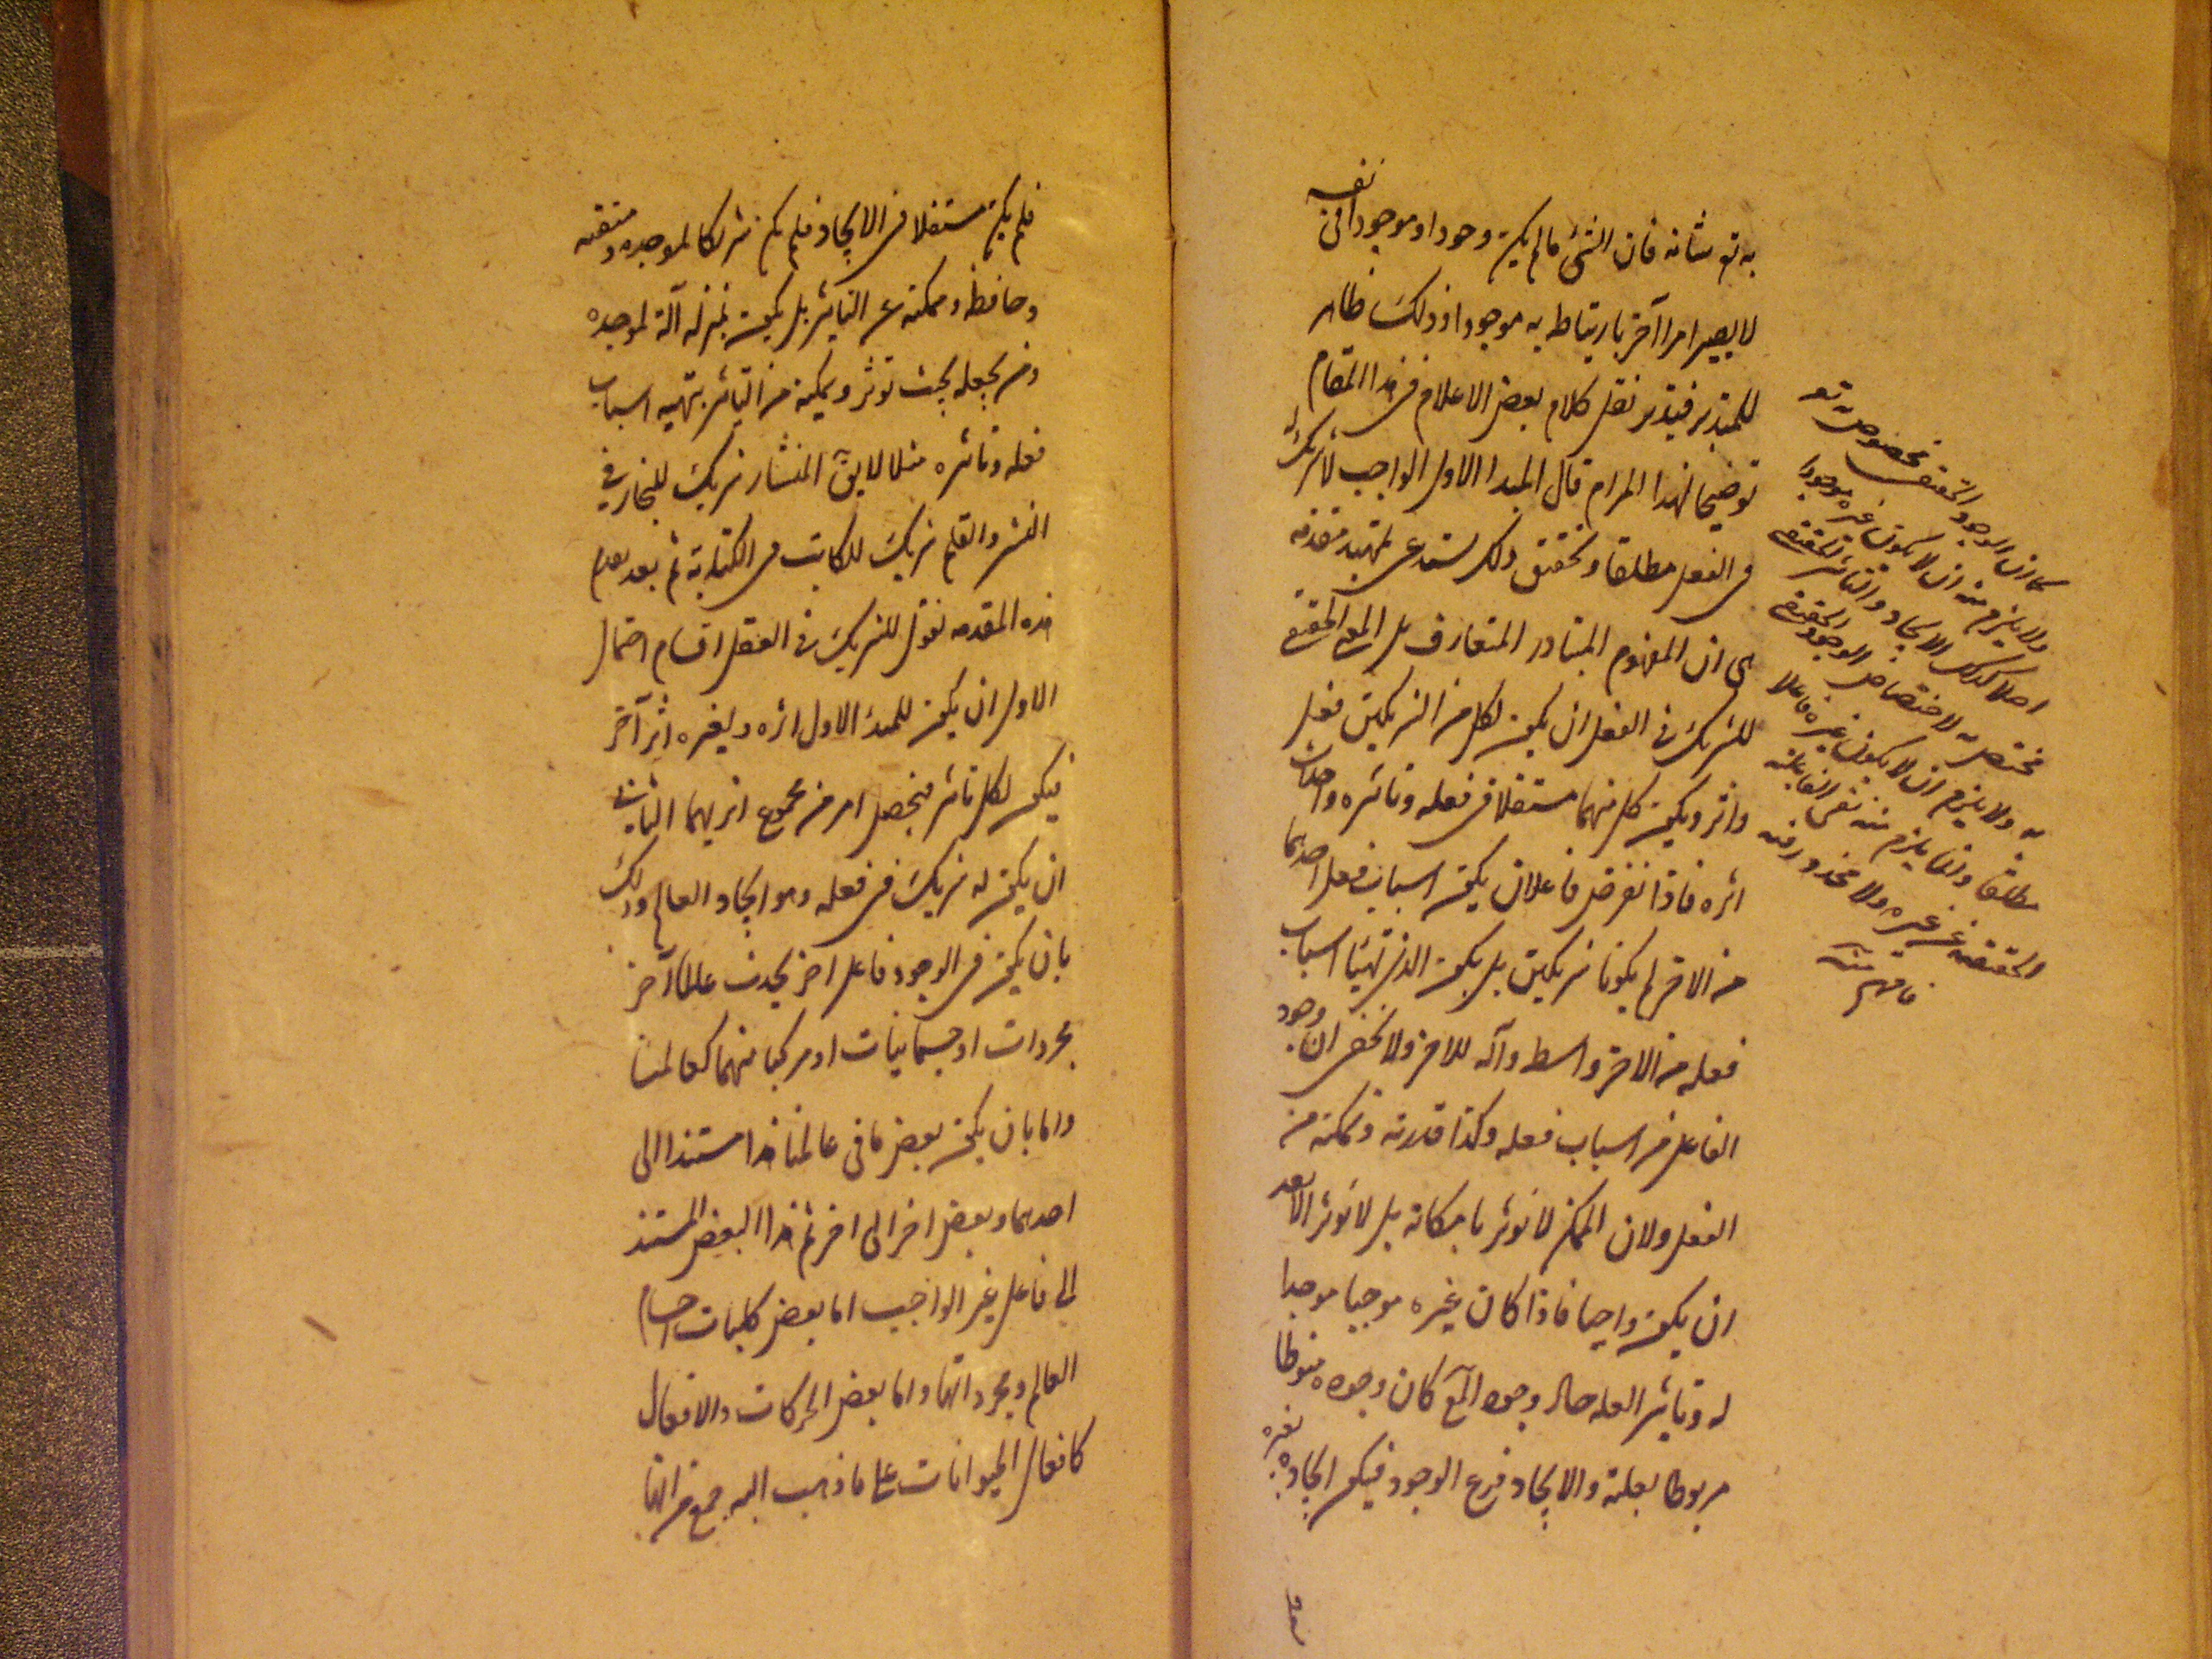 به تعر شانه فان الشئ ما لم يكن وجودا و موجودا فى نفسه
لا يصير امرا آخر بارتباطه به موجودا و ذلك ظاهر
للمتدبر فيتدبر نقل كلام بعض الاعلام فى هذا المقام
توضيحا لهذا المرام قال المبدا الاول الواجب لا شريك له
فى الفعل مطلقا و تحقيق ذلك يستدعى تمهيد مقدمه
هى ان المفهوم المتبادر المتعارف بل المعنى الحقيقى
للشريك فى الفعل ان يكون لكل من الشريكين فعل
و اثر و يكون كل منهما مستقلا فى فعله و تاثيره و احداث
اثره فاذا نفرض فاعلان يكون اسباب فعل احدهما
من الاخر لم يكونا شريكين بل يكون الذى تهيأ اسباب
فعله من الاخر واسطه و آله للاخر و لا يخفى ان وجود
الفاعل من اسباب فعله و كذا قدرته و تمكنه من
الفعل و لان الممكن لا يؤثر بامكانه بل لا يؤثر الا بعد
ان يكون واجبا فاذا كان غيره موجبا موجدا
له و تاثير العله حال وجود المع كان وجوده منوطا
مربوطا بعلته و الايجاد فرع الوجود فيكون ايجاده بغيره
كما ان الوجود الحقيقى مخصوص به تعر
و لا يلزم منه ان لا يكون غيره موجودا
اصلا كذلك الايجاد و التاثير الحقيقى
مختص به لاختصاص الوجود الحقيقى
به و لا يلزم ان لا يكون غيره فاعلا
مطلقا و انما يلزم منه نفى الفاعليه
الحقيقيه عن غيره و لا محذور فيه
فافهم منه
فلم يكن مستقلا فى الايجاد فلم يكن شريكا لموجده و متقنه
و حافظه و ممكنه من التاثير بل يكون بمنزله آلة لموجده
و من يجعله بحيث يؤثر و يمكنه من التاثير بتهيه اسباب
فعله و تاثيره مثلا لا يق المنشار شريك للنجار فى
النشر و القلم شريك للكاتب فى الكتابة ثم بعد تقديم
هذه المقدمه نقول للشريك فى العقل اقسام احتمال
الاول ان يكون للمبدء الاول اثره و لغيره اثر آخر
فيكون لكل تاثير فيحصل امر من مجموع اثريهما الثانى
ان يكون له شريك فى فعله و هو ايجاد العالم و ذلك
بان يكون فى الوجود فاعل اخر يحدث عالما آخر
مجردات او جسمانيات او مركبا منهما كعالمنا
و اما بان يكون بعض ما فى عالمنا هذا مستندا الى
احدهما و بعض اخر الى اخر ثم هذا البعض المستند
الى فاعل غير الواجب اما بعض كليات اجسام
العالم و مجرداتها و اما بعض الحركات و الافعال
كافعال الحيوانات على ما ذهب اليه جمع من انها